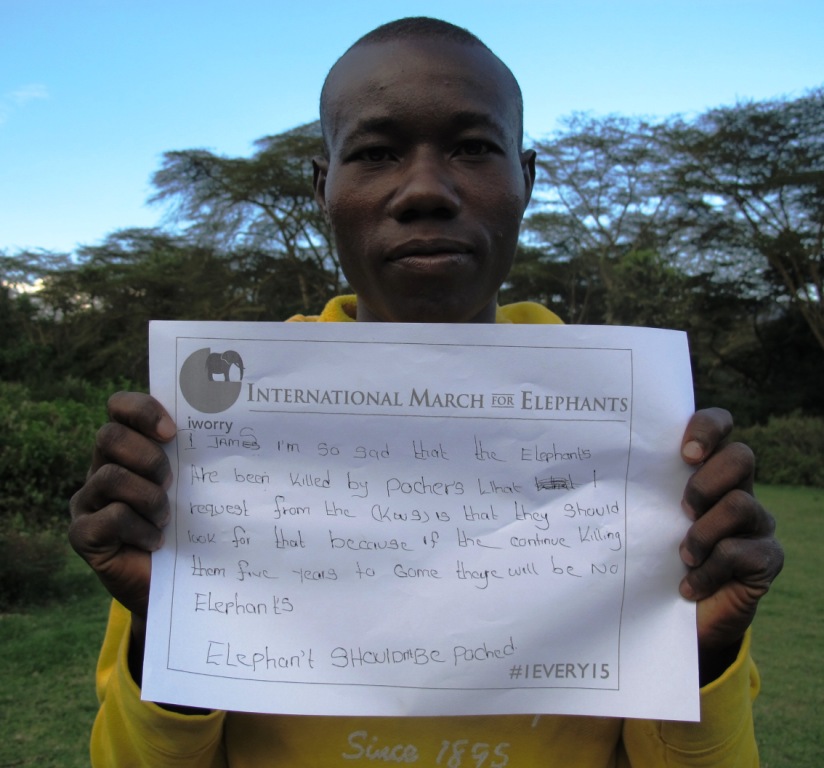 INTERNATIONAL MARCH FOR ELEPHANTS
iworry
I JAMES I'm so sad that the Elephants
Are been killed by pochers what I
request from the (kws) is that they should
look for that because if the continue killing
them five years to come there will be NO
Elephants
Elephan't SHouldn't Be poched
#1EVERY15
Since 1895